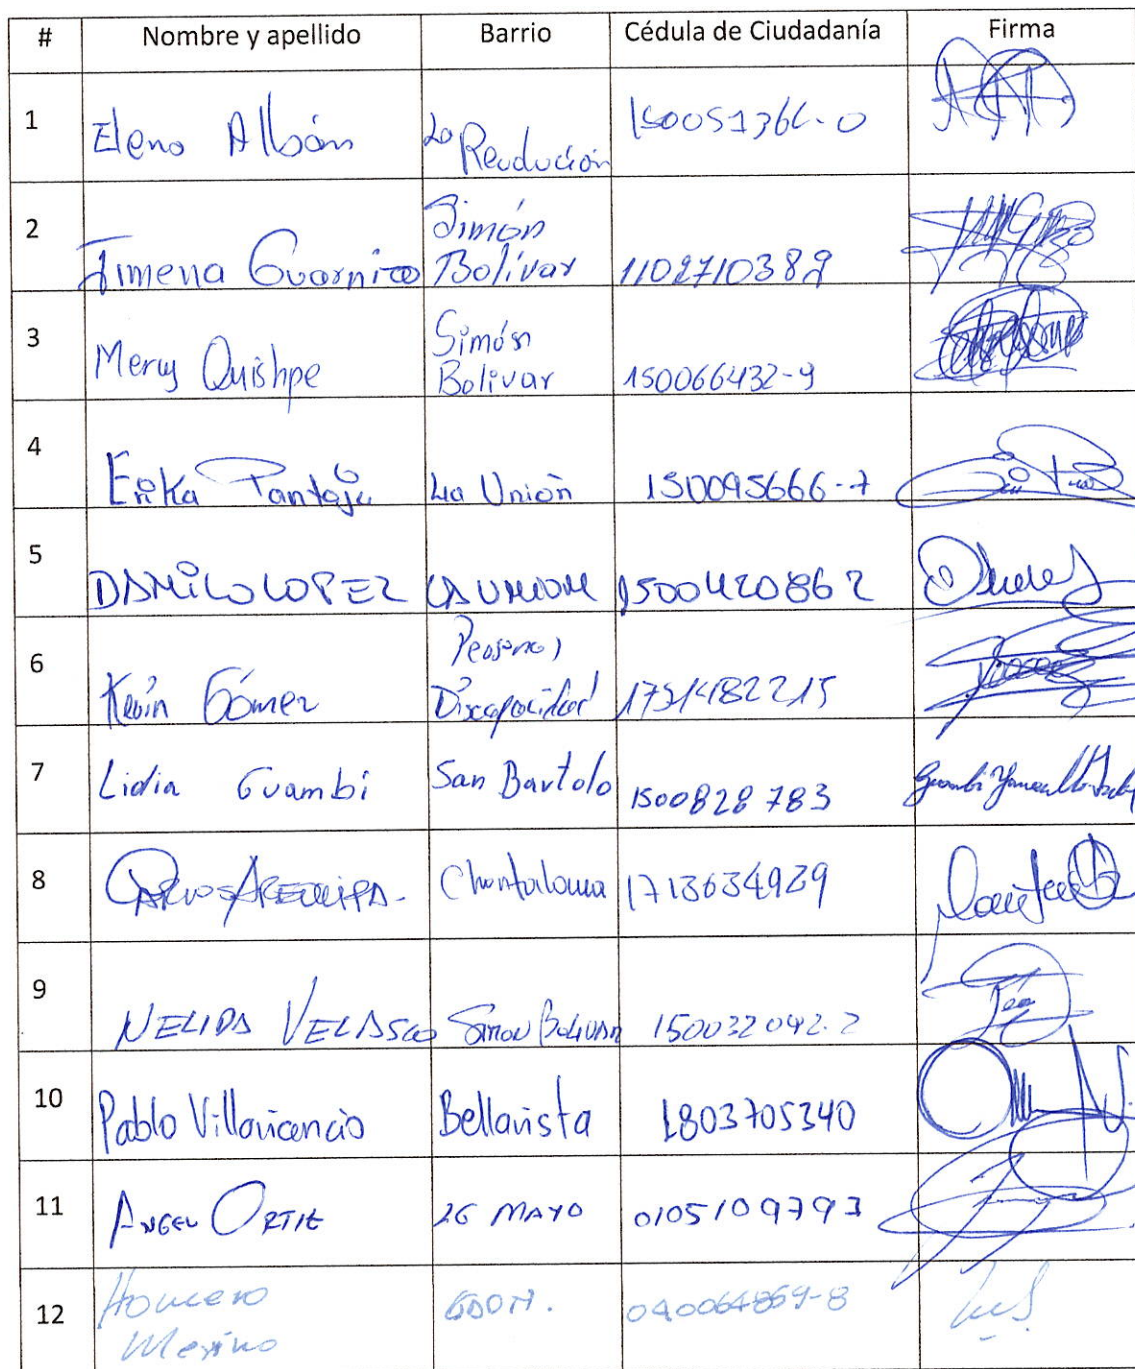 # Nombre y apellido Barrio Cédula de Ciudadanía Firma
1 Elena Albán La Revolución 150051366-0
2 Jimena Guarnizo Simón Bolívar 1102710389
3 Mercy Quishpe Simón Bolivar 150066432-9
4 Erika Pantoja La Unión 150095666-7
5 DANILO LOPEZ LA UNION 1500420862
6 Kevin Gómez Discapacidad
7 Lidia Guambi San Bartolo 1500828783
8 CARLOS AREQUIPA. Chontaloma 1713634929
9 NELIDA VELASCO SIMON BOLIVAR 150032042-2
10 Pablo Villavicencio Bellavista 1803705340
11 ANGEL ORTIZ 26 MAYO 0105109793
12 Homero Merino